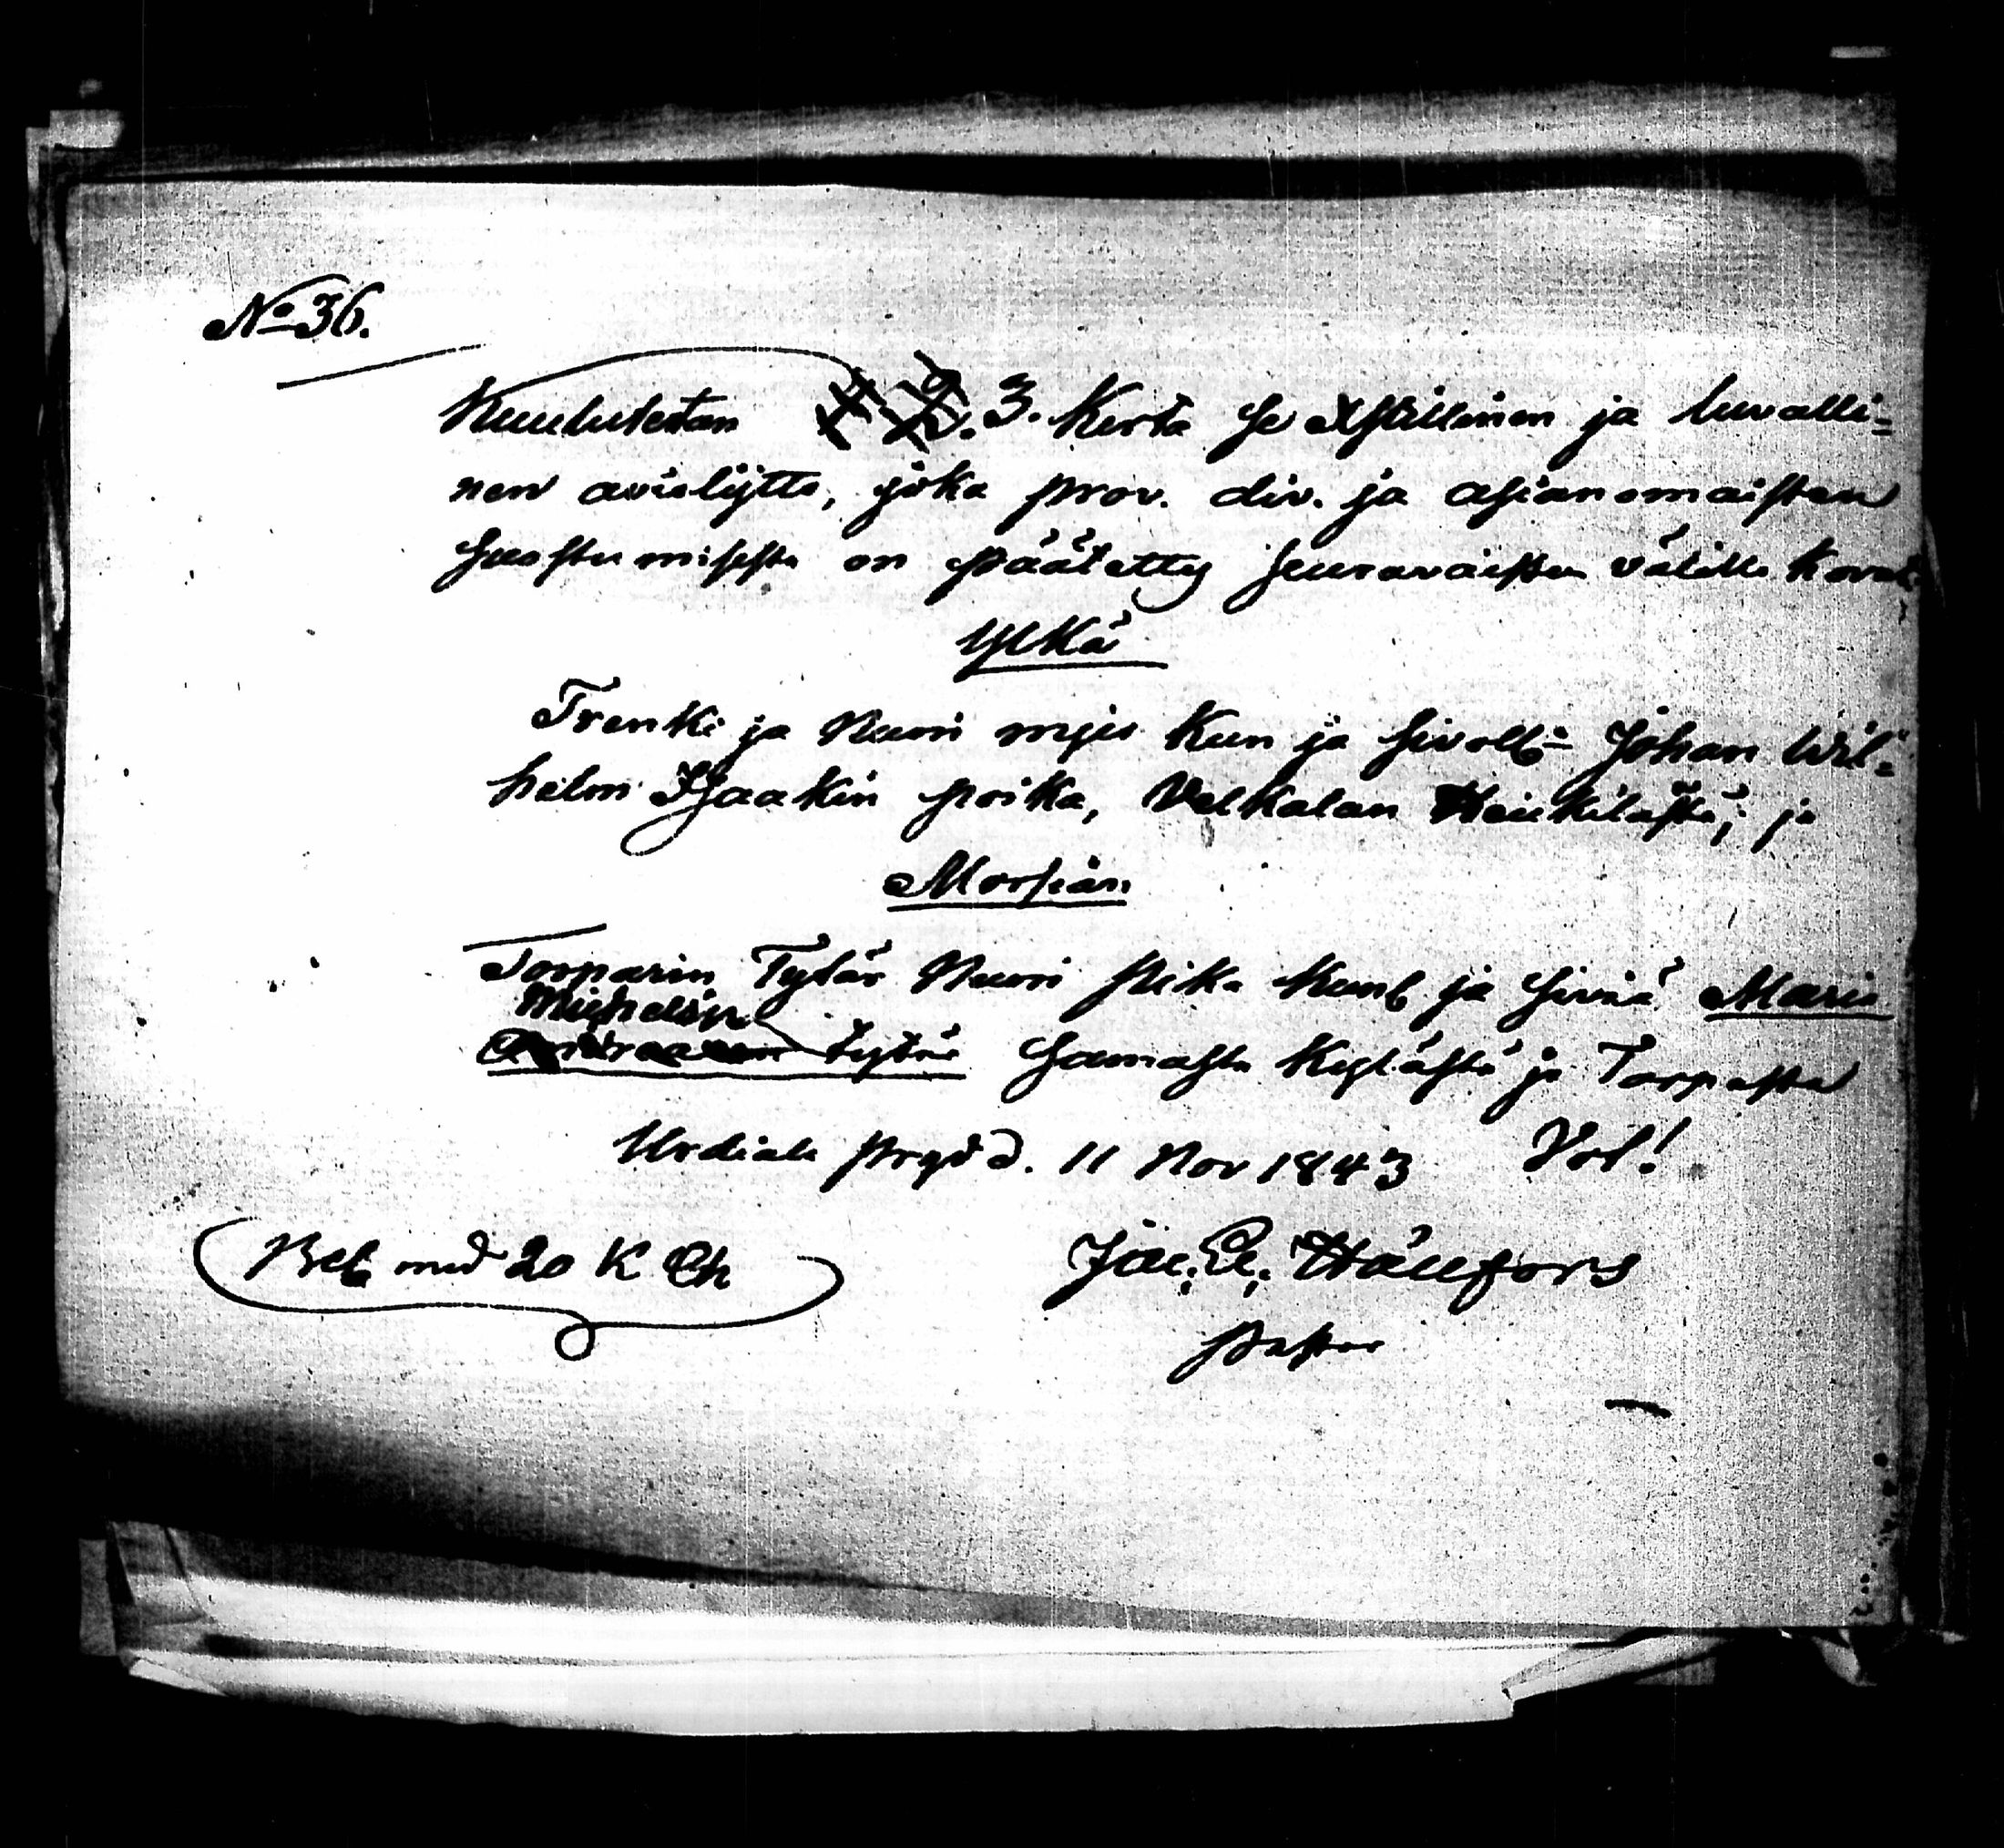 No 36.
Kuulutetan 1. 2. 3. Kerta se Xstillinen ja luvalli=
nen avioliitto, joka prov. div. ja asianomaisten
suostumisesta on päätetty seuravaisten välille
Ylkä
Trenki ja Nuori mjes Kun ja sivoll= Johan Wil=
helm Isaakin poika, Velkalan Heikilästä; ja
Morsian
Torparin Tytär Nuori pika Kunl ja siviä Maria
Michelin
tytär samasta Kylästä ja Torpasta
Urdiala prgd d. 11 Nov 1843 Vol!
Bel. med 20 K Ch
Jac. E. Hällfors
pastor